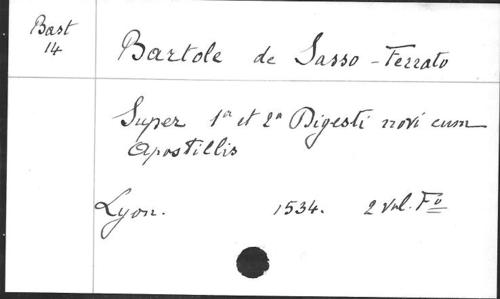 Bast
14
Bartole de Sasso-Ferrato
Super 1a et 2a Digesti novi cum
Apostillis
Lyon. 1534. 2 vol. Fo